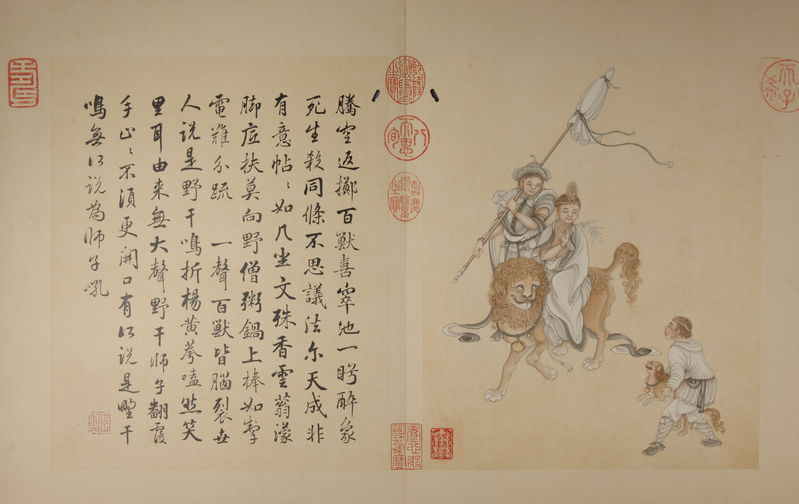 騰空返擲百獸喜窣地一眄醉象
死生殺同條不思議法尒天成非
有意帖〻如几坐文殊香雲蓊濛
脚底扶莫向野僧粥鍋上棒如掣
電難分疏 一聲百獸皆腦裂世
人說是野干鳴折楊黃荂嗑然笑
里耳由來無大聲野干師子翻覆
手止〻不須更開口有所說是野干
鳴無所說為師子吼